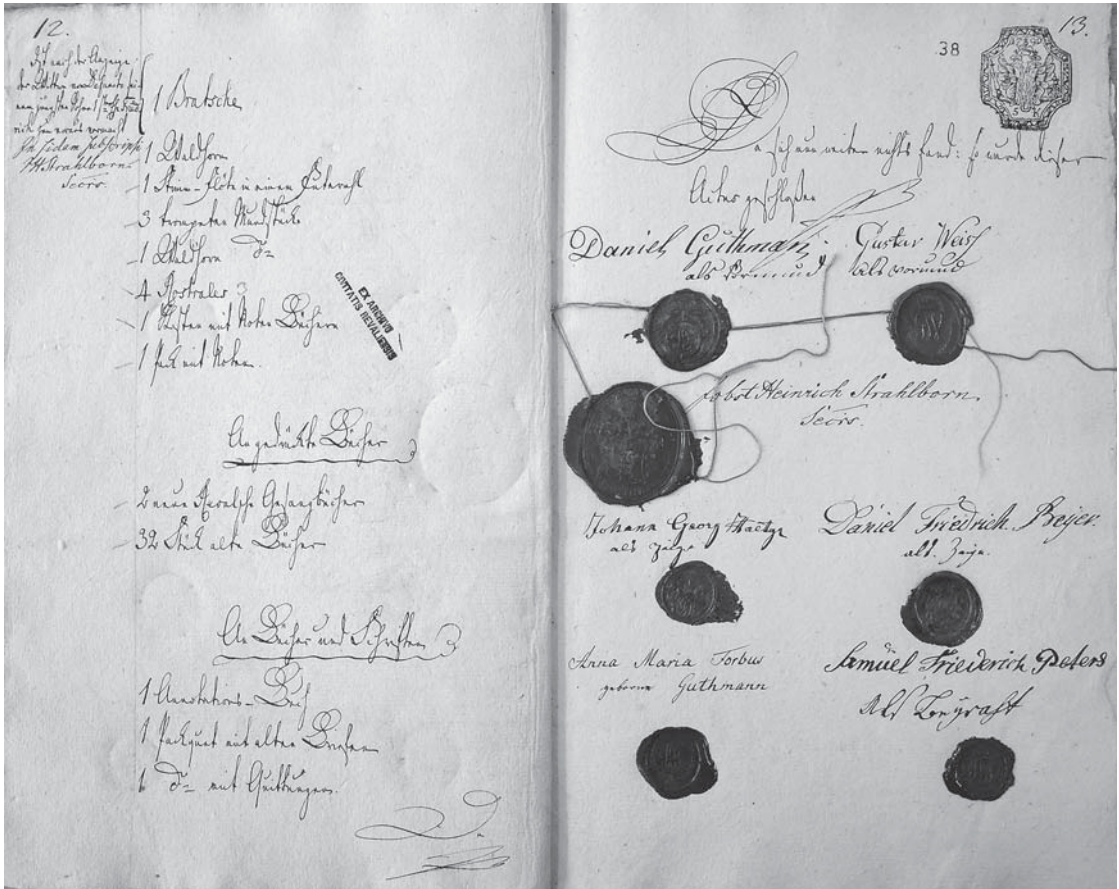 12.
Ist nach der Anzeige
der Witten
In fidem subscripsi
JH Strahlborn
Secrs.
1 Bratsche
1 Waldhorn
1 Flöte in einem Futerahl
3 trompeten Mundstücke
1 Waldhorn do
4 Rostraler
1 Kasten mit Noten Büchern
1 Pack mit Noten.
EX ARCHIVO
CIVITATIS REVALIENSIS
An gedruckte Bücher
2 neue Revalsche Gesangbücher
32 Stück alte Bücher
An Bücher und Schriften
1 Annotations-Buch
1 Packquet mit alten Briefen
1 do mit Quittungen.
13.
38
S K
Da sich nun weiter nichts fand: so wurde dieser
Actus geschloßen
Daniel Guthman
als Vormund
Gustav Weiss
als vormund
Jobst Heinrich Strahlborn.
Secrs.
Johann Georg
als Zeige
Daniel Friedrich Beijer.
als Zeige.
Anna Maria Torbus
geborne Guthmann
Samuel Friederich Peters
Als